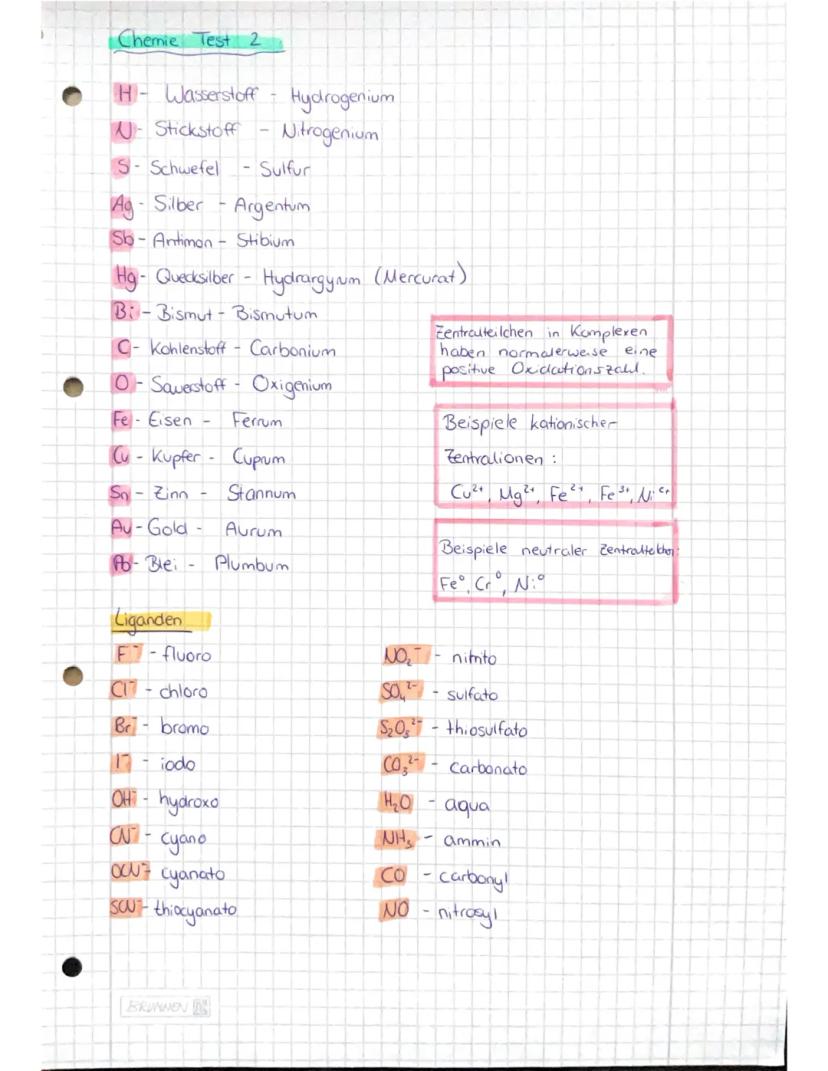 Chemie Test 2
H - Wasserstoff - Hydrogenium
N - Stickstoff - Nitrogenium
S - Schwefel - Sulfur
Ag - Silber - Argentum
Sb - Antimon - Stibium
Hg - Quecksilber - Hydrargyrum (Mercurat)
Bi - Bismut - Bismutum
C - Kohlenstoff - Carbonium
O - Sauerstoff - Oxigenium
Fe - Eisen - Ferrum
Cu - Kupfer - Cuprum
Sn - Zinn - Stannum
Au - Gold - Aurum
Pb - Blei - Plumbum
Zentralteilchen in Komplexen
haben normalerweise eine
positive Oxidationszahl.
Beispiele kationischer
Zentralionen :
Cu²⁺, Mg²⁺, Fe²⁺, Fe³⁺, Ni
Beispiele neutraler
Fe⁰, Cr⁰, Ni⁰
Liganden
F⁻ - fluoro
Cl⁻ - chloro
Br⁻ - bromo
I⁻ - iodo
OH⁻ - hydroxo
CN⁻ - cyano
OCN⁻ - cyanato
SCN⁻ - thiocyanato
NO₂⁻ - nitrito
SO₄²⁻ - sulfato
S₂O₃²⁻ - thiosulfato
CO₃²⁻ - carbonato
H₂O - aqua
NH₃ - ammin
CO - carbonyl
NO - nitrosyl
BRUNNEN